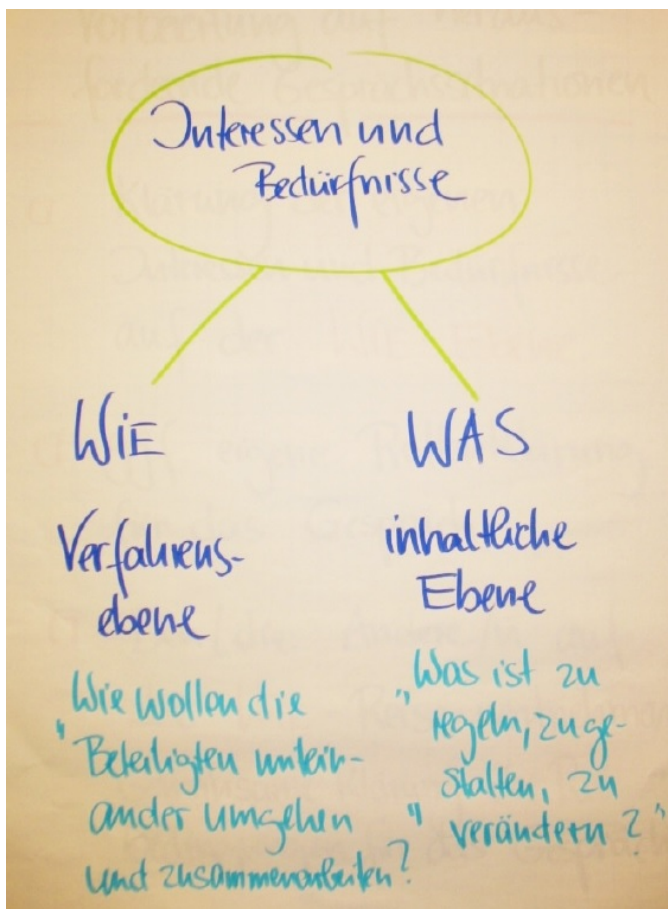 Interessen und
Bedürfnisse
WIE
Verfahrens-
ebene
„Wie wollen die
Beteiligten unterein-
ander umgehen
und zusammenarbeiten?"
WAS
inhaltliche
Ebene
„Was ist zu
regeln, zu ge-
stalten, zu
verändern?"